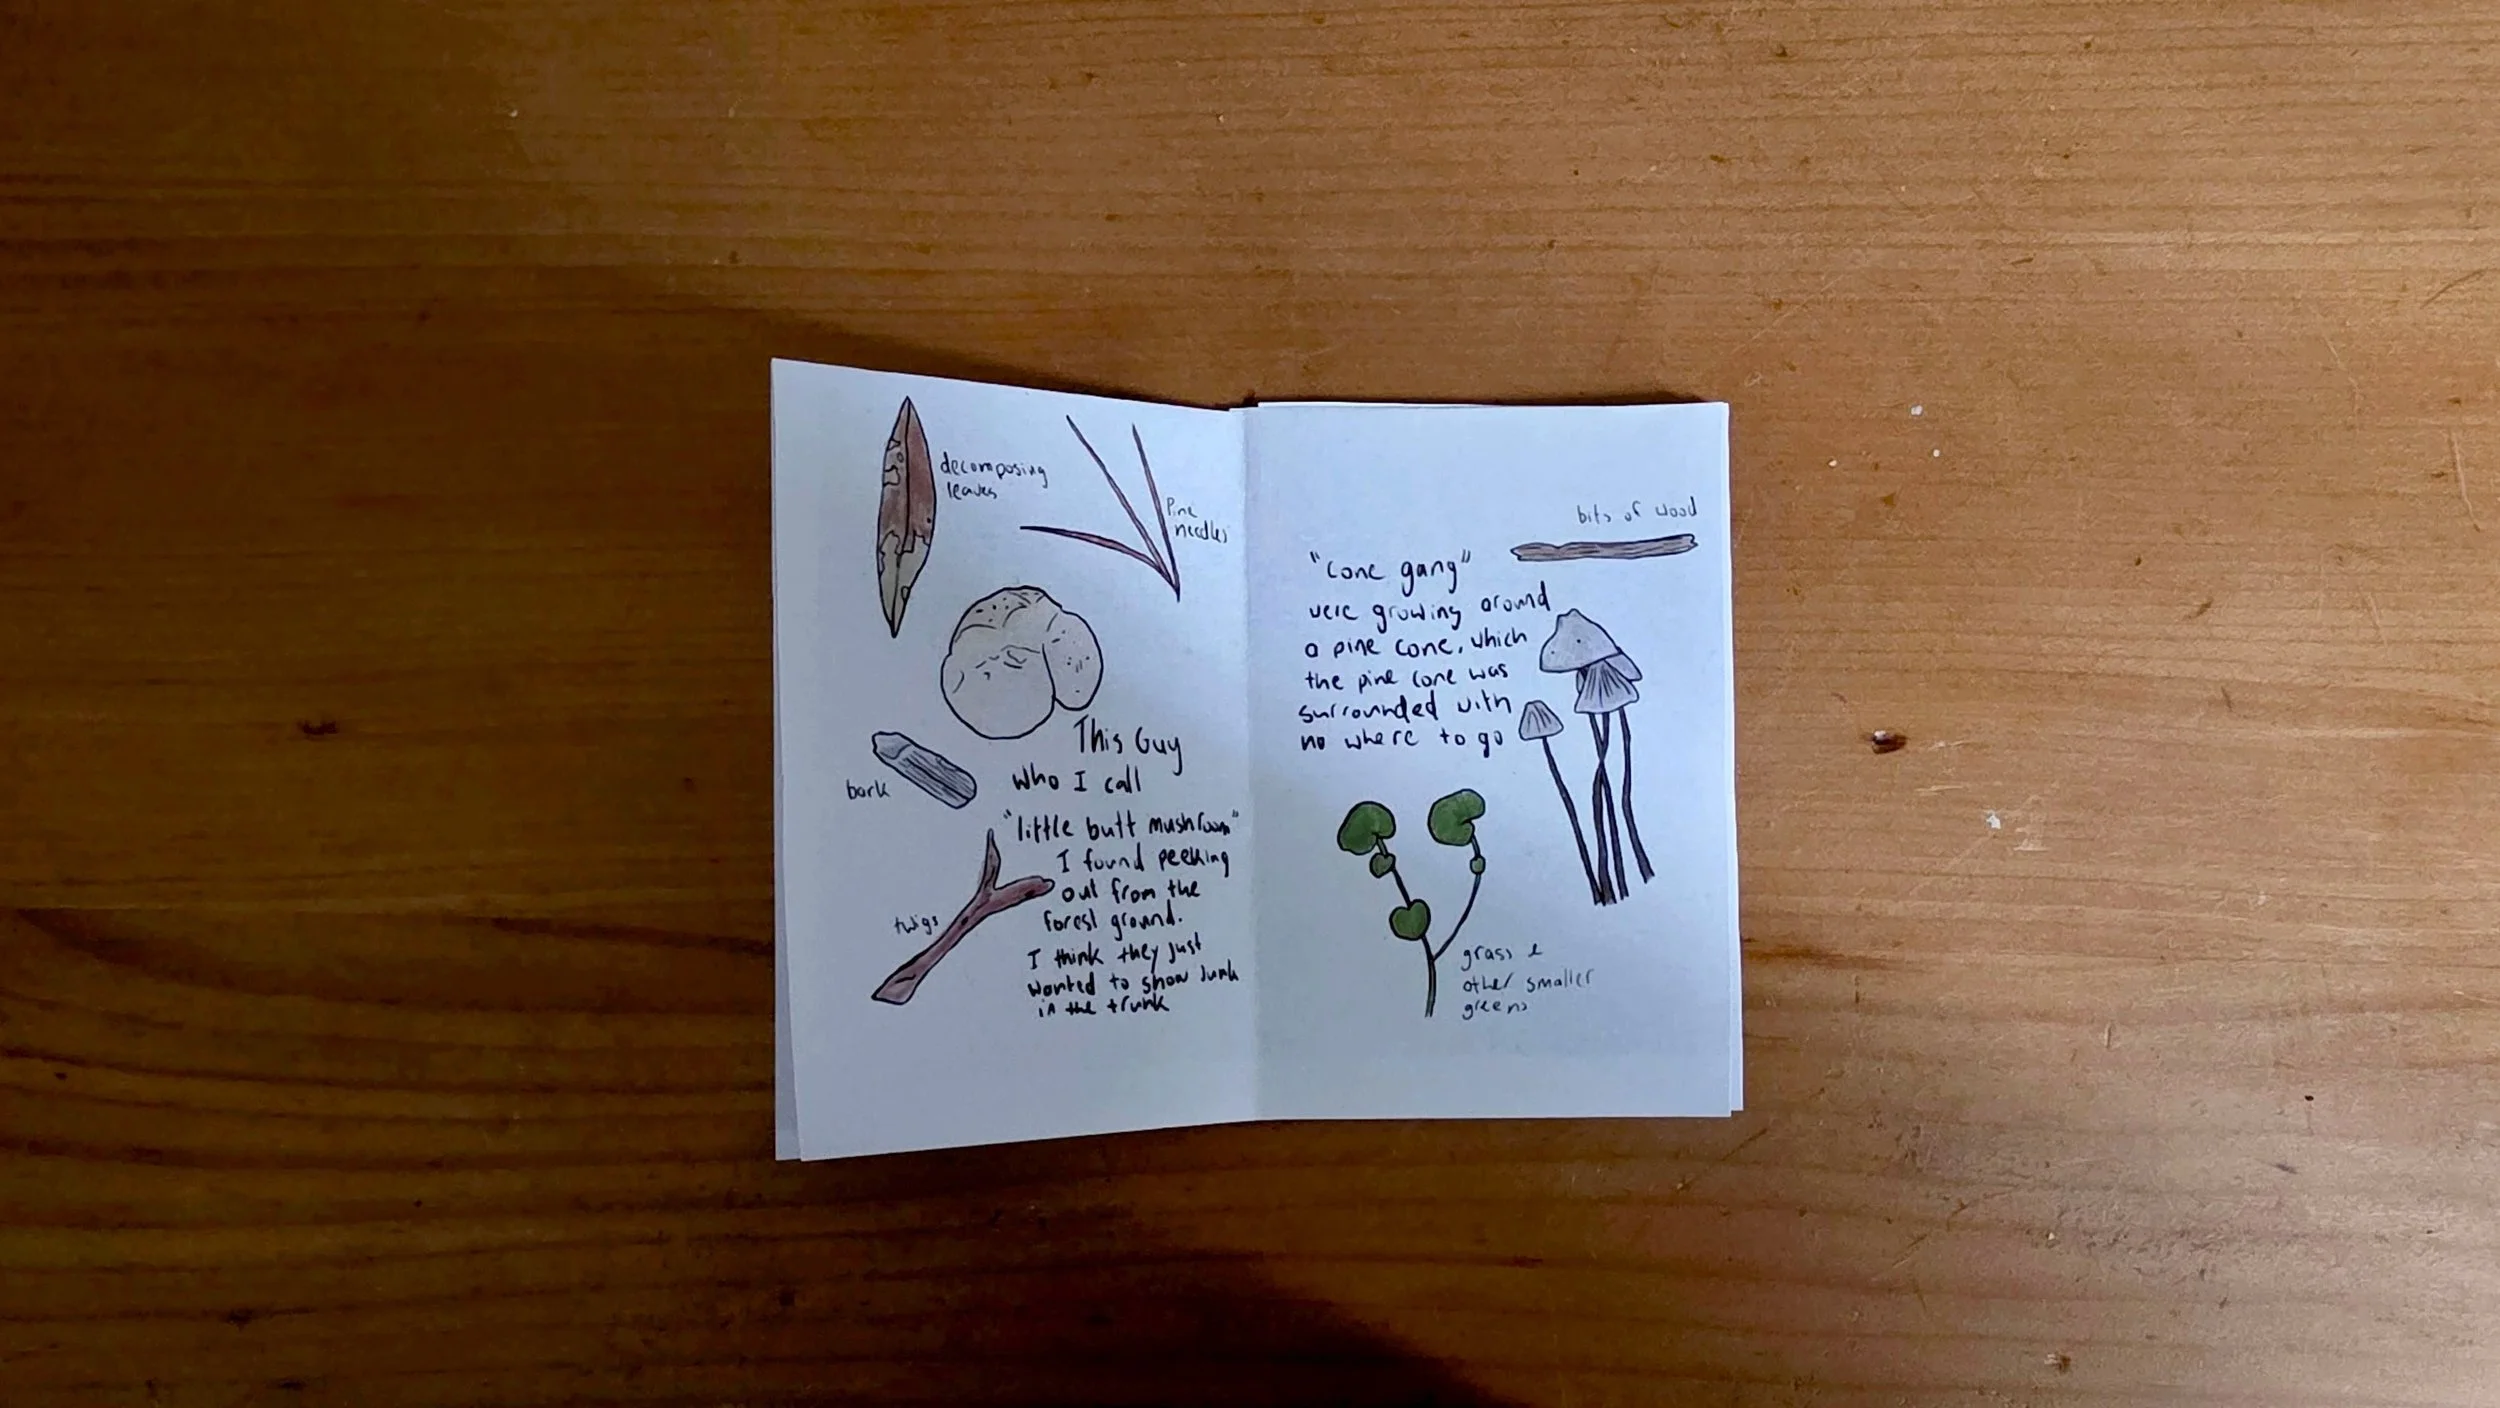 decomposing
leaves
Pine
needles
This Guy
who I call
"little butt mushroom"
I found peeking
out from the
forest ground.
I think they just
wanted to show junk
in the trunk
bark
twigs
bits of wood
"cone gang"
were growing around
a pine cone, which
the pine cone was
surrounded with
no where to go
grass &
other smaller
greens